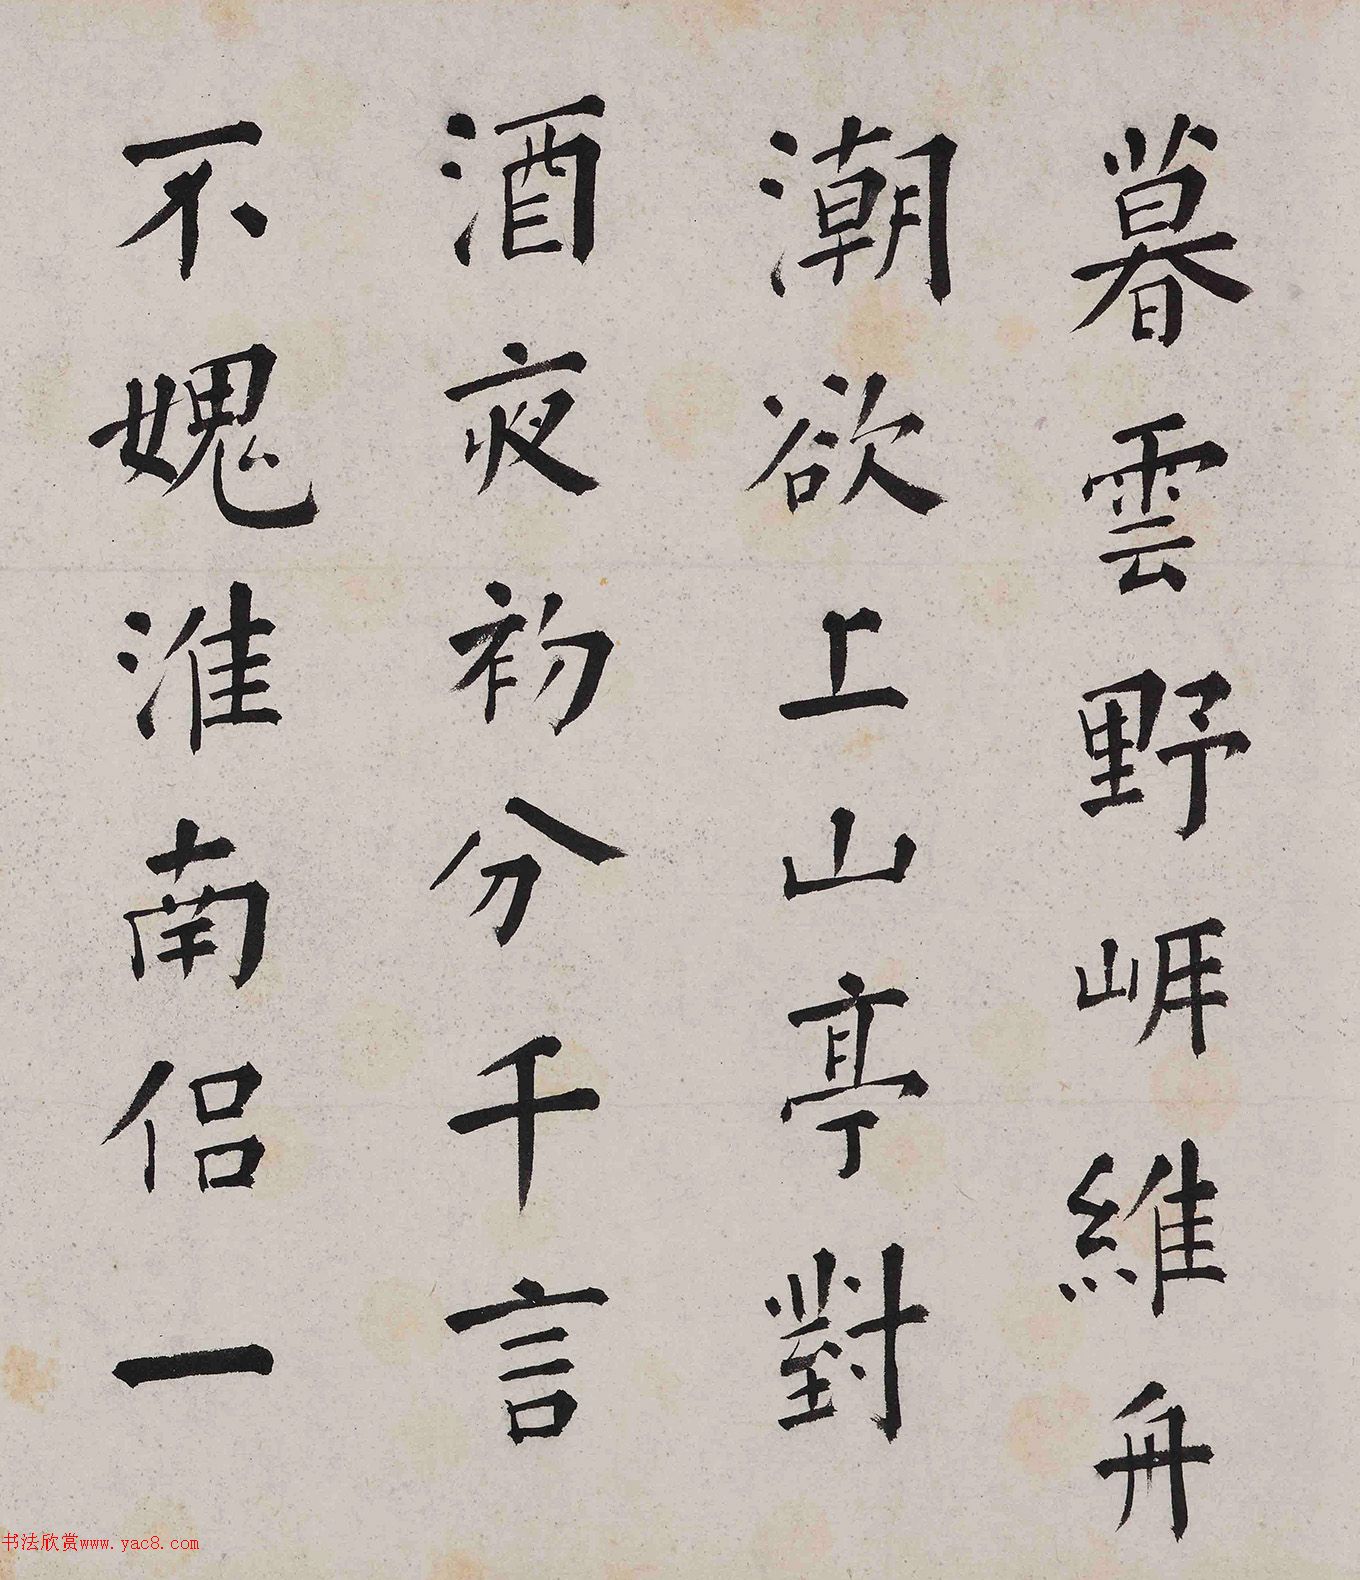 暮雲野岸維舟
潮欲上山亭對
酒夜初分千言
不媿淮南侣一
书法欣赏www.yac8.com